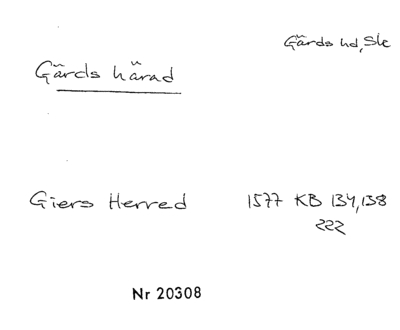 Gärds hd, Ske
Gärds härad
Giers Herred 1577 KB 134,138
222
Nr 20308